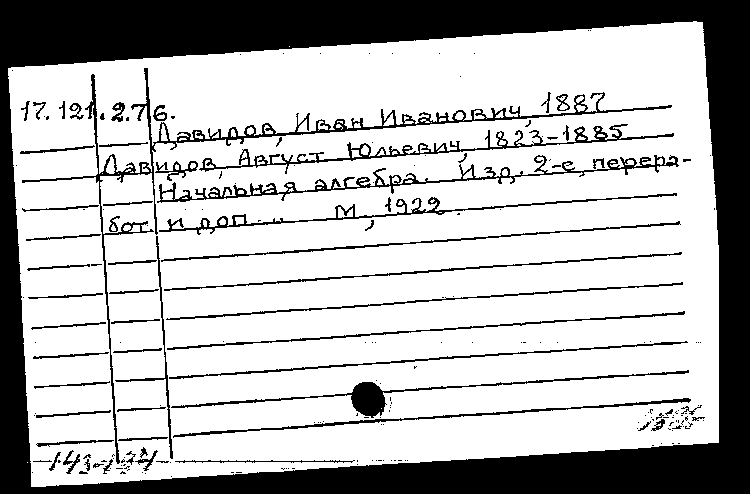 17.121.2.76.
Давидов, Иван Иванович, 1887
Давидов, Август Юльевич, 1823-1885
Начальная алгебра. Изд. 2-е, перера-
бот. и доп... М., 1922.
143-134